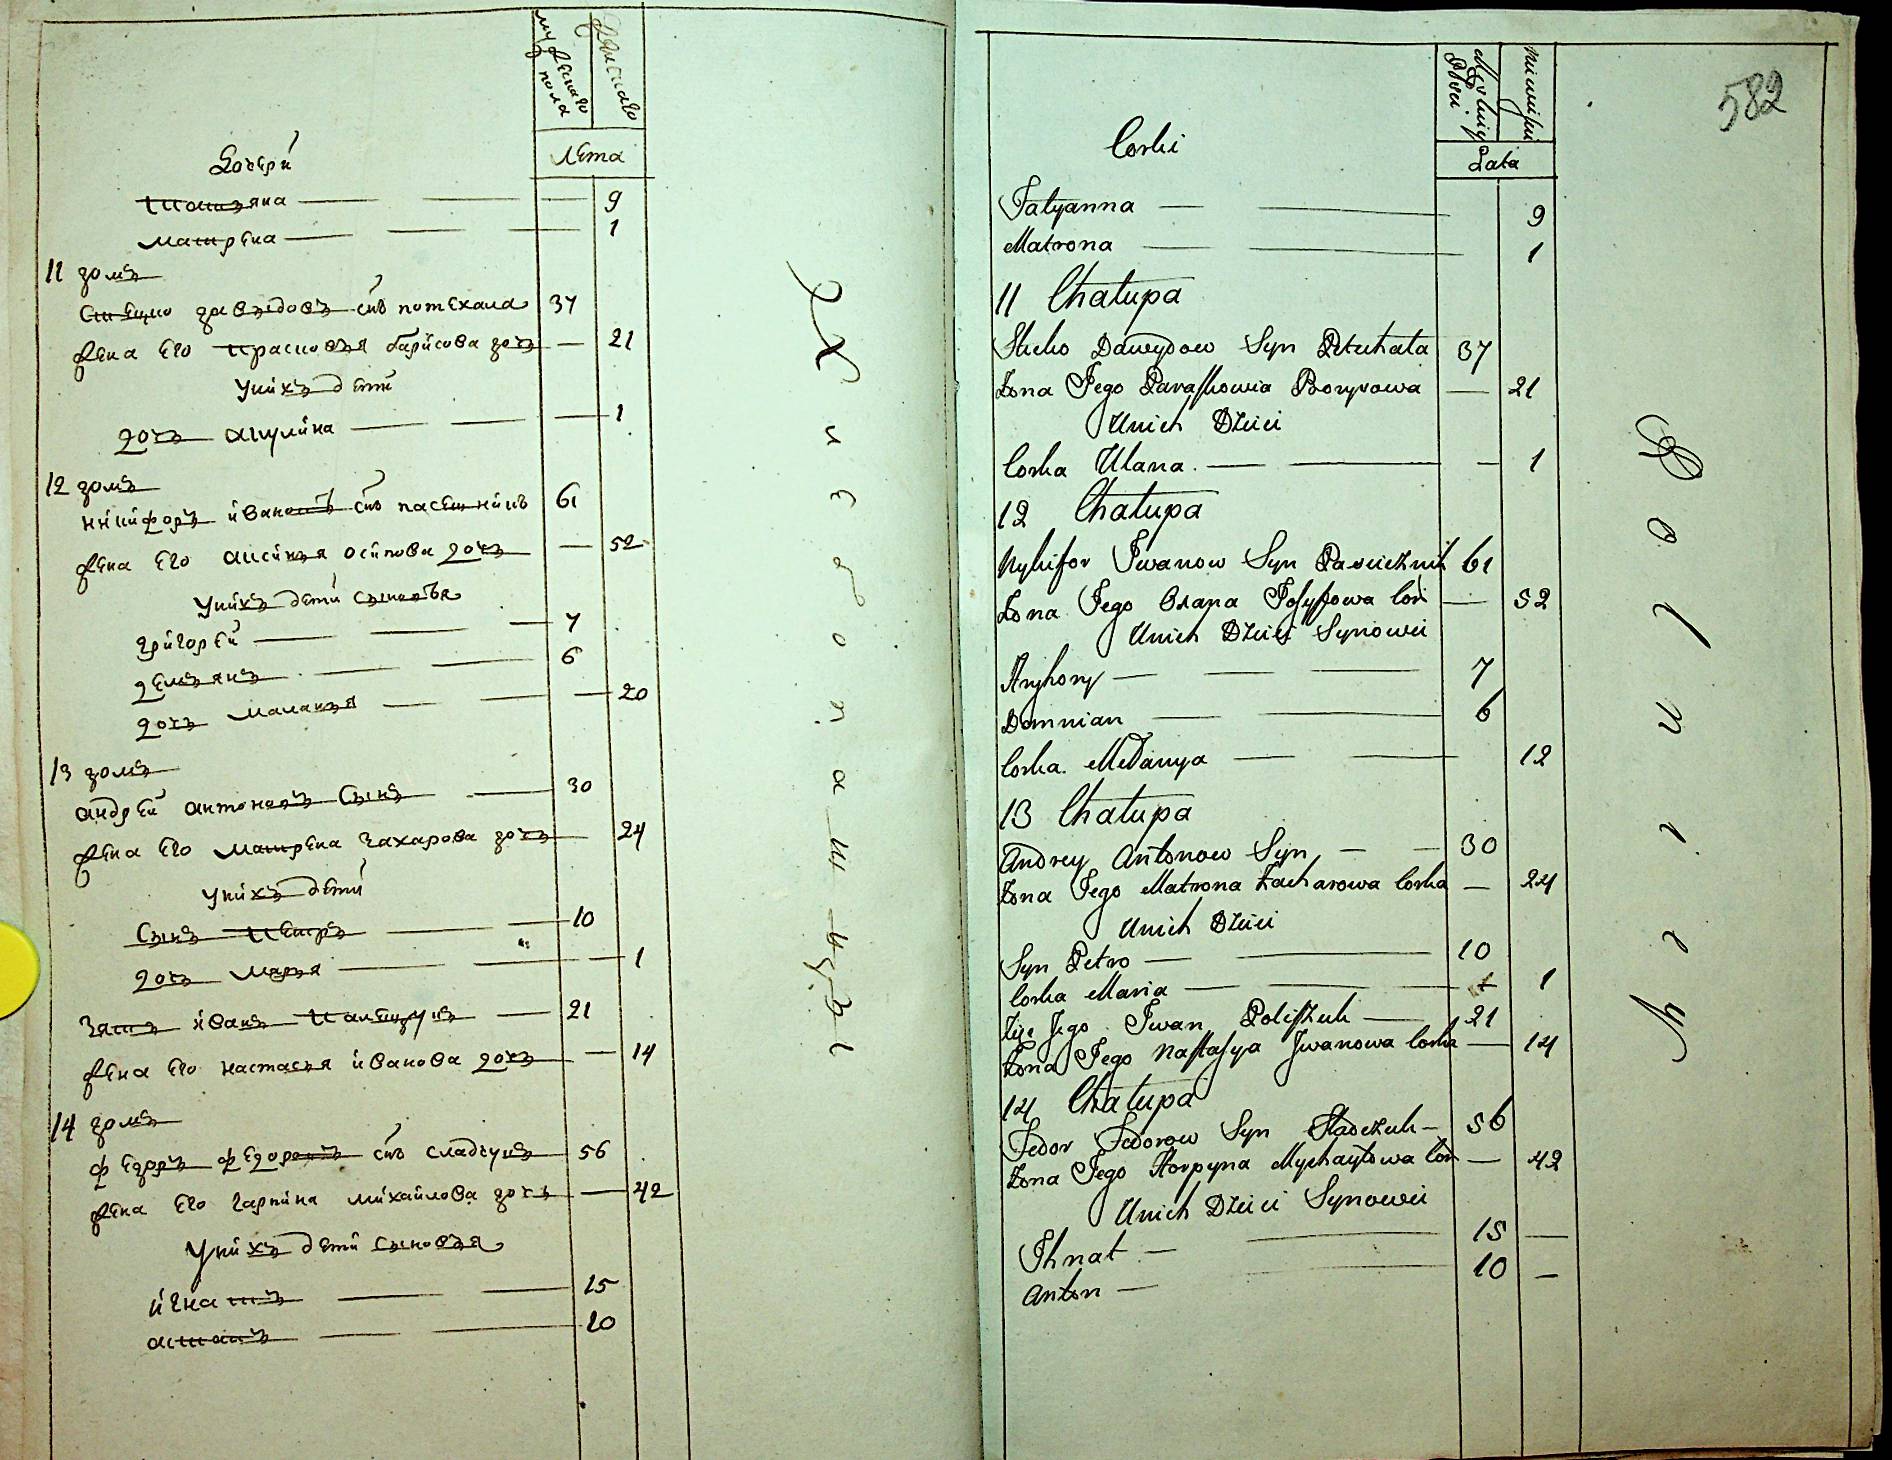 мужескаго пола
женскаго
лета
дочери
татьяна 9
матрена 1
11 домъ
стецко давыдовъ снъ потехала 37
жена его прасковья барисова дочь 21
у нихъ дети
дочь акулина 1
12 домъ
никифоръ ивановъ снъ пасешникъ 61
жена его аксинья осипова дочь 52
у нихъ дети сыновья
григорей 7
демьянъ 6
дочь маланья 20
13 домъ
андрей антоновъ сынъ 30
жена его матрена захарова дочь 24
у нихъ дети
сынъ петръ 10
дочь марья 1
зять иванъ 21
жена его настасья иванова дочь 14
14 домъ
федоръ федоровъ снъ сладчукъ 56
жена его гарпина михайлова дочь 42
у нихъ дети сыновья
игнатъ 15
антонъ 10
582
Męskiey Płci
Lata
Corki
Tatyanna 9
Matrona 1
11 Chałupa
Stecko Dawydow Syn 37
Żona Jego Paraskowia Borysowa 21
Unich Dzieci
Corka Ulana 1
12 Chałupa
Nykifor Iwanow Syn Pasiecznik 61
Żona Jego Oxana Josypowa Cor 52
Unich Dzieci Synowei
Hryhory 7
Domnian 6
Corka Mełanya 12
13 Chałupa
Andrey Antonow Syn 30
Żona Jego Matrona Zacharowa Corka 24
Unich Dzieci
Syn Petro 10
Corka Maria 1
Zięć Jego Iwan Poliszuk 21
Żona Jego Nastasya Jwanowa Corka 14
14 Chałupa
Fedor Fedorow Syn Sładczuk 56
Żona Jego Horpyna Mychayłowa Cor 42
Unich Dzieci Synowei
Ihnat 15
Anton 10